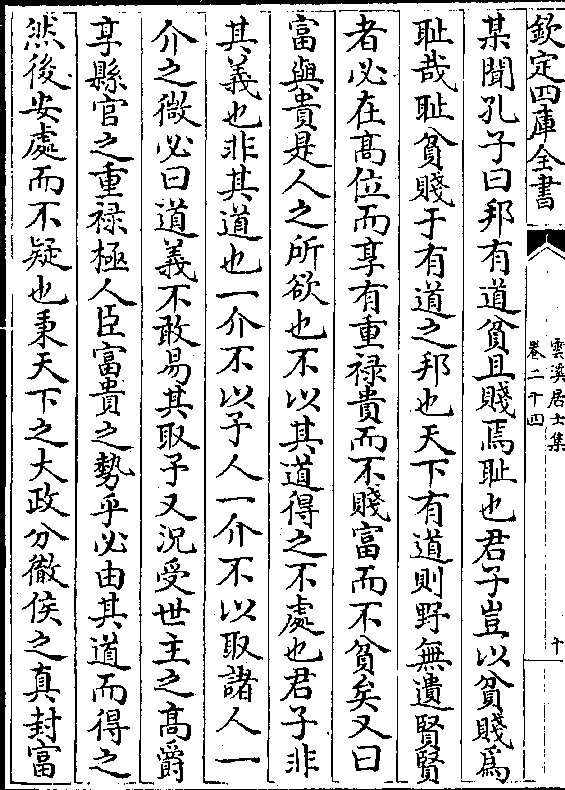 欽定四庫全書
雲溪居士集
卷二十四
十
某聞孔子曰邦有道貧且賤焉耻也君子豈以貧賤爲
耻哉耻貧賤于有道之邦也天下有道則野無遺賢賢
者必在髙位而享有重禄貴而不賤富而不貧矣又曰
富與貴是人之所欲也不以其道得之不處也君子非
其義也非其道也一介不以予人一介不以取諸人一
介之微必曰道義不敢易其取予又況受世主之髙爵
享縣官之重禄極人臣富貴之勢乎必由其道而得之
然後安處而不疑也秉天下之大政分徹侯之真封富